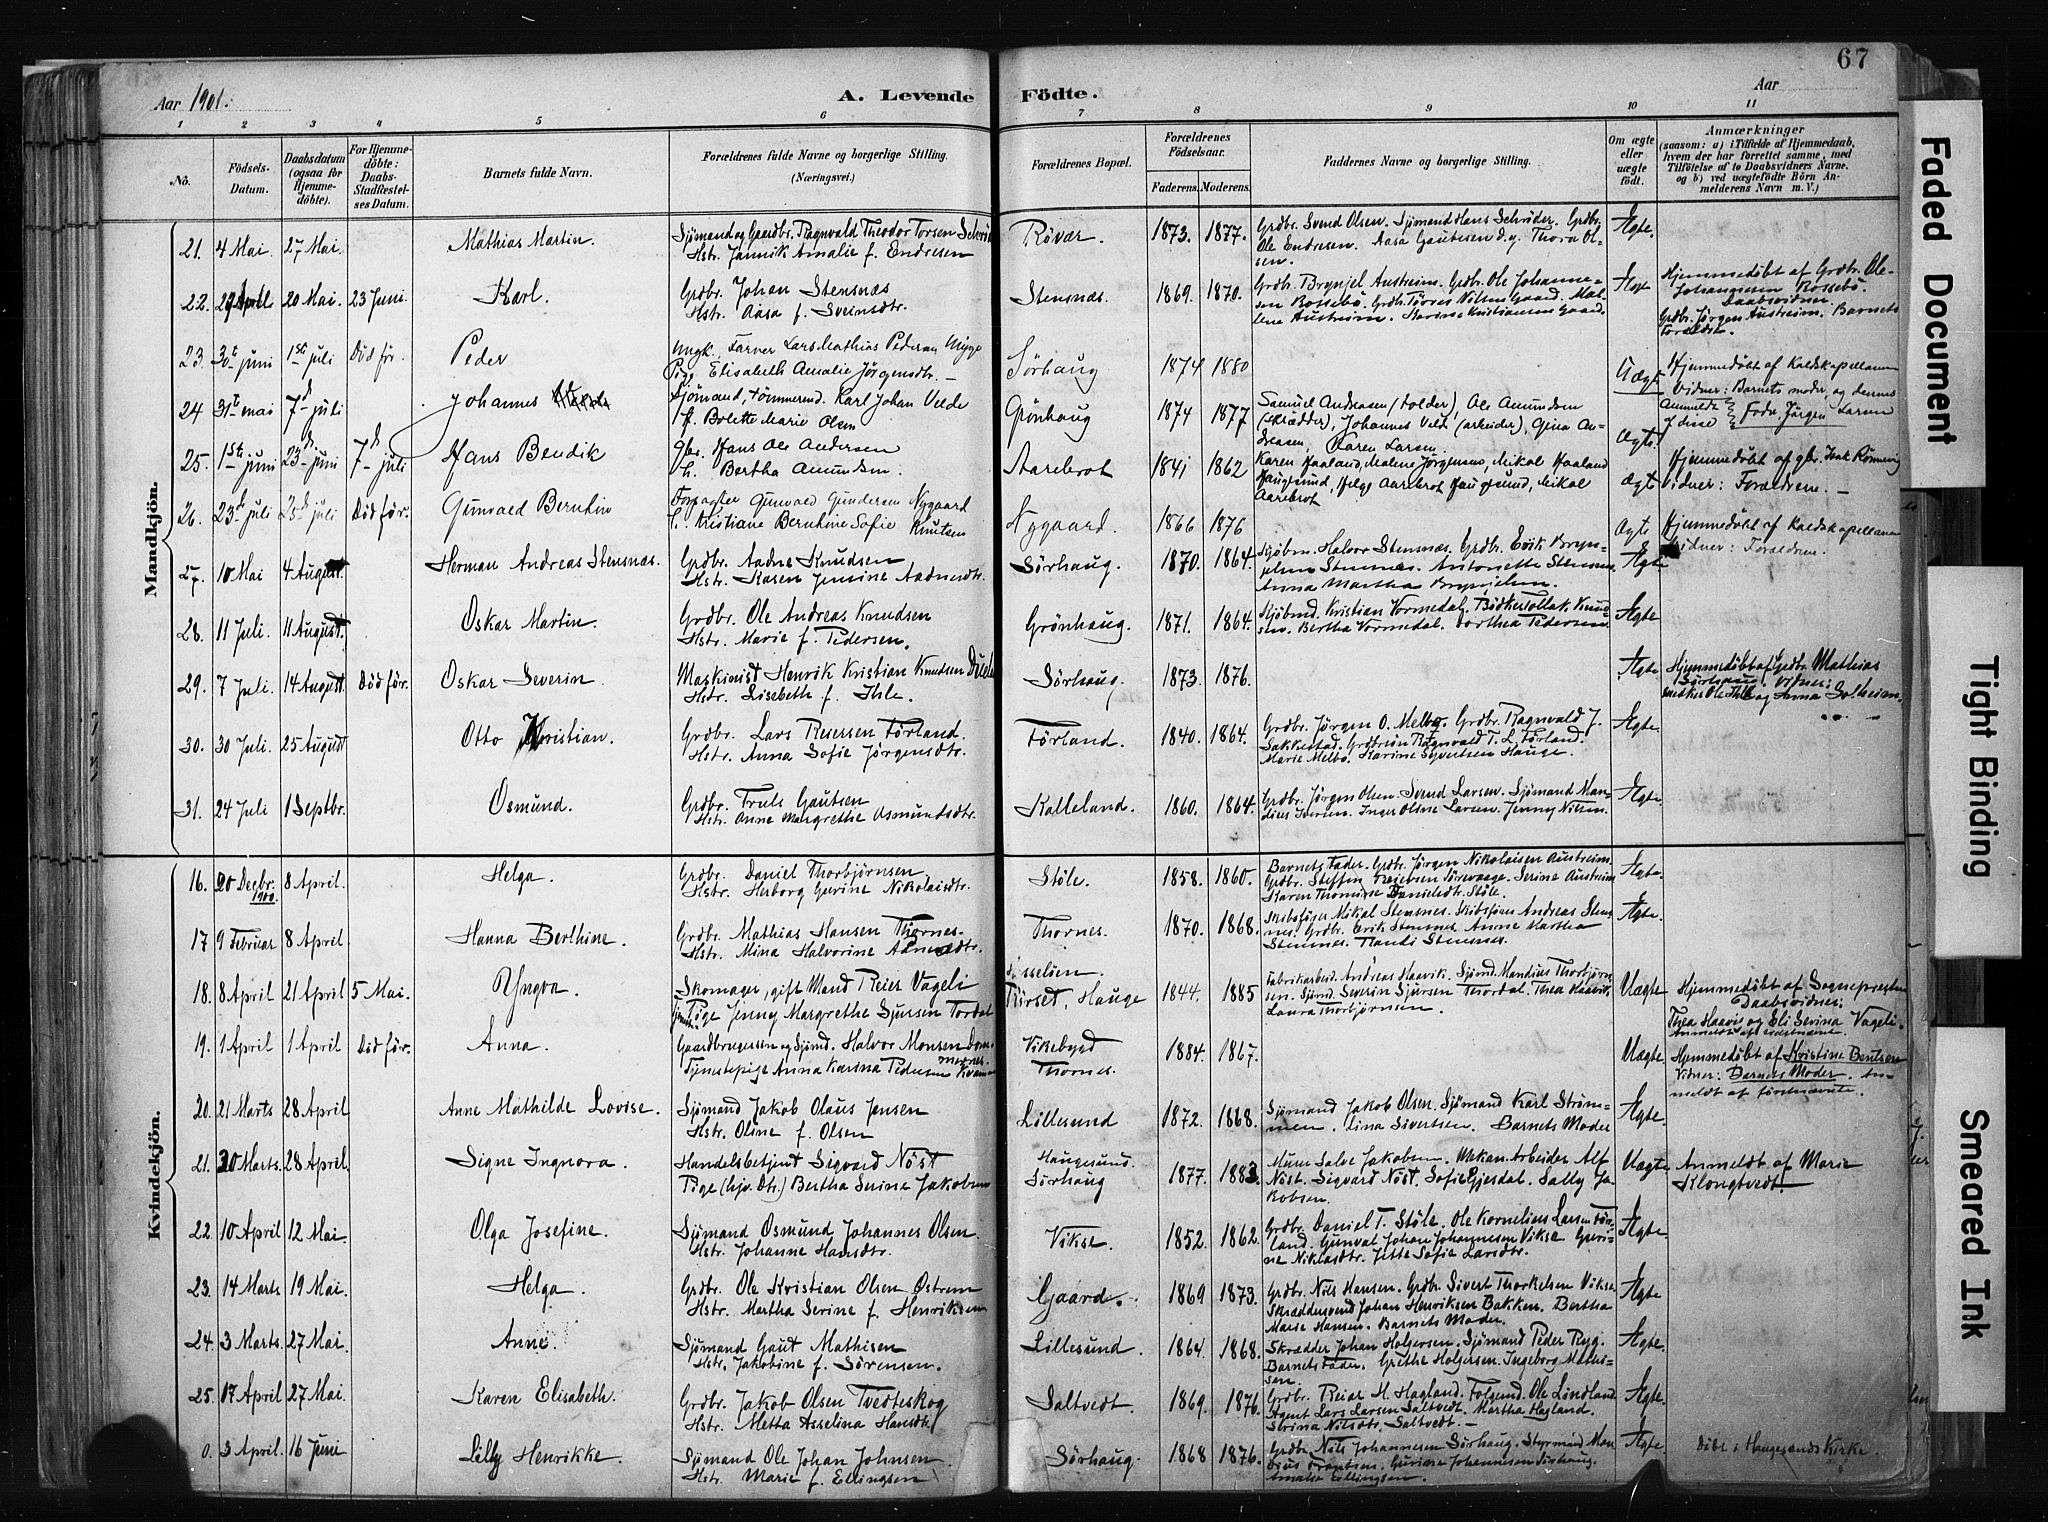 67
Aar 1901. A. Levende Födte. Aar
1 2 3 4 5 6 7 8 9 10 11
No. Födsels-Datum. Daabsdatum (ogsaa for Hjemmedöbte). For Hjemmedöbte: Daabs-Stadfæstelses Datum. Barnets fulde Navn. Forældrenes fulde Navne og borgerlige Stilling. (Næringsvei.) Forældrenes Bopæl. Forældrenes Födselsaar. Faderens. Moderens. Faddernes Navne og borgerlige Stilling. Om ægte eller uægte födt. Anmærkninger (saasom: a) i Tilfælde af Hjemmedaab, hvem der har forrettet samme, med Tilföielse af to Daabsvidners Navne. og b) ved uægtefödte Börn Anmelderens Navn m. V.)
Mandkjön.
21. 4 Mai. 27 Mai. Mathias Martin. Sjömand og Gaardbr. Ragnvald Theodor Torsen
Hstr. Jannik Amalie f. Endresen Rövær. 1873. 1877. Grdbr. Svend Olsen. Sjömand Hans Schröder. Grdbr.
Ole Endresen. Aasa Gautesen d.y. Thora Olsen. Ægte.
22. April 20 Mai. 23 Juni. Karl. Grdbr. Johan Stensnæs
Hstr. Aasa f. Sveinsdtr. Stensnæs. 1869. 1870. Grdbr. Brynjel Austreim. Grdbr. Ole Johannesen Rossebö. Grdbr. Törres Nilsen Gaard. Malene Austreim. Karine Kristiansen Gaard. Ægte Hjemmedöbt af Grdbr. Ole Johannesen Rossebö.
Daabsvidner:
Grdbr. Jörgen Austreim. Barnets Forældre.
23. 30te juni 1ste juli Död för. Peder Ungk. Farver Lars Mathias Pedersen Mygge
Pige Elisabeth Amalie Jörgensdtr. Sörhaug 1874 1880 Uægte Hjemmedöbt af Kaldskapellanen
Vidner: Barnets moder, og dennes Fader, Jörgen Larsen
24 31te mai 7d juli Johannes Sjömand, Tömmermd. Karl Johan Velde
f. Bolette Marie Olsen Grönhaug 1874 1877 Samuel Andreasen (folder), Ole Amundsen
(skrædder), Johannes Velde (arbeider), Gina Andreasen, Karen Larsen. Ægte.
25. 1ste juni 23d juni 7d juli Hans Bendik Gbr. Hans Ole Andersen
h. Bertha Amundsen. Aarebrot 1841 1862 Karen Haaland, Malene Jörgensen, Mikal Haaland
Haugesund, Helge Aarebrot Haugesund, Mikal
Aarebrot Ægte Hjemmedöbt af gbr. Isak Rönnevig
Vidner: Forældrene.
26. 23d juli 25d juli Död för. Gunvald Bernhin Forpagter Gunvald Gundersen Nygaard
h. Kristiane Bernhine Sofie Knutsen Nygaard. 1866 1876 Ægte Hjemmedöbt af Kaldskapellanen
Vidner: Forældrene.
27. 10 Mai 4 August. Herman Andreas Stensnæs. Grdbr. Aadne Knudsen
Hstr. Karen Jensine Aadnesdtr. Sörhaug. 1870. 1864. Halvor Stensnæs. Grdbr. Erik Brynjelsen Stensnes. Antonette Stensnes.
Anna Martha Brynjelsen. Ægte
28. 11 Juli. 11 August. Oskar Martin. Grdbr. Ole Andreas Knudsen
Hstr. Marie f. Pedersen. Grönhaug. 1871. 1864. Kristian Vormedal. Knudsen. Bertha Vormedal. Dorthea Pedersen. Ægte
29. 7 Juli. 14 August. Död för. Oskar Severin. Maskinist Henrik Kristian Knudsen
Hstr. Lisebeth f. Ihle. Sörhaug. 1873. 1876. Ægte Hjemmedöbt af Grdbr. Mathias
Sörhaug. Vidner:
Ole Ihle og Anna Solheim.
30. 30 Juli. 25 August Otto Kristian. Grdbr. Lars Resersen Förland.
Hstr. Anna Sofie Jörgensdtr. Förland. 1840. 1864. Grdbr. Jörgen O. Melbö. Grdbr. Ragnvald J.
Sakkestad. Ragnvald T. L. Förland.
Marie Melbö. Karine Sivertsen Hauge. Ægte.
31. 24 Juli 1 Septbr. Osmund. Grdbr. Truls Gautsen
Hstr. Anne Margrethe Osmundsdtr. Kalleland. 1860. 1864. Grdbr. Jörgen Olsen. Svend Larsen. Sjömand Iversen. Inger Oline Larsen. Jenny Nilsen. Ægte.
Kvindekjön.
16. 20 Decbr. 1900. 8 April. Helga. Grdbr. Daniel Thorbjörnsen.
Hstr. Herborg Gurine Nikolaisdtr. Stöle. 1858. 1860. Barnets Fader. Grdbr. Jörgen Nikolaisen Austreim.
Grdbr. Steffen Serine Austreim
Karen Thomine Danielsdtr. Stöle. Ægte.
17 9 Februar 8 April. Hanna Berthine. Grdbr. Mathias Hansen Thornes.
Hstr. Mina Halvorine Thornes. 1870. 1868. Skibsförer Mikal Stensnes. Skibsförer Andreas Stensnes. Grdbr. Erik Stensnes. Anne Martha
Stensnes. Randi Stensnes. Ægte.
18. 8 April 21 April 5 Mai. Yngva. Skomager, gift Mand Reier Vageli
Pige Jenny Margrethe Sjursen Tordal Hauge 1844. 1885 Fabrikarbeid. Andreas Haavik. Sjömd. Mandius Thorbjörnsen. Sjömd. Severin Sjursen Thordal. Thea Haavik.
Laura Thorbjörnsen. Uægte Hjemmedöbt af Sognepresten
Daabsvidner:
Thea Haavik og Eli Serina Vageli.
19. 1 April 1 April Död för. Anna. Gaardbrugersön og Sjömd. Halvor Monsen
Tjenestepige Anna Karina Pedersen Vikebygd
Thornes. 1884. 1867. Uægte. Hjemmedöbt af Kristine Bentsen
Vidner: Barnets Moder. Anmeldt af förstnævnte.
20. 21 Marts 28 April Anne Mathilde Lovise. Sjömand Jakob Olaus Jensen
Hstr. Oline f. Olsen Lillesund 1872. 1868. Sjömand Jakob Olsen. Sjömand Karl Strömmen. Lina Sivertsen. Barnets Moder Ægte.
21. 30 Marts. 28 April. Signe Ingnora. Handelsbetjent Sigvard Nöst
Pige (hjv. Dtr.) Bertha Serine Jakobsen Haugesund.
Sörhaug 1877. 1883. Murer Salve Jakobsen. Mekan. Arbeider Alf
Nöst. Sigvard Nöst. Sofie Gjesdal. Sally Jakobsen. Uægte Anmeldt af Marie
Klongtvedt.
22. 10 April 12 Mai. Olga Josefine. Sjömand Osmund Johannes Olsen
Hstr. Johanne Hansdtr. Vikse. 1852. 1862. Grdbr. Daniel T. Stöle. Ole Kornelius Larsen Förland. Gunval Johan Johannesen Vikse. Gurine Niklasdtr. Jette Sofie Larsdtr. Ægte.
23. 14 Marts 19 Mai. Helga. Grdbr. Ole Kristian Olsen Östrem
Hstr. Martha Serine f. Henriksen Gaard. 1869 1873. Grdbr. Nils Hansen. Grdbr. Sivert Thorkelsen Vikse.
Skræddersvend Johan Henriksen Bakken. Bertha
Marie Hansen. Barnets Moder. Ægte
24. 3 Marts. 27 Mai. Anne. Sjömand Gaut Mathisen
Hstr. Jakobine f. Sörensen. Lillesund. 1864. 1868. Skrædder Johan Holgersen. Sjömand Peder Ryg.
Barnets Fader. Grethe Holgersen. Ingeborg Mathisen. Ægte.
25. 17 April 27 Mai. Karen Elisabeth. Grdbr. Jakob Olsen Tvedteskog
Hstr. Metta Asselina Hansdtr. Saltvedt. 1869. 1876. Grdbr. Reiar H. Hagland. Ole Lindland
Agent Lars Larsen Saltvedt. Martha Hagland.
Serina Nilsdtr. Saltvedt. Ægte
3 April. 16 Juni Lilly Henrikke. Sjömand Ole Johan Johnsen.
Hstr. Marie f. Ellingsen Sörhaug. 1868 1876. Grdbr. Nils Johannesen Sörhaug. Styrmand
Gurine Johannesen Sörhaug.
Amalie Ellingsen. Ægte Döbt i Haugesunds Kirke.
Faded Document
Tight Binding
Smeared Ink